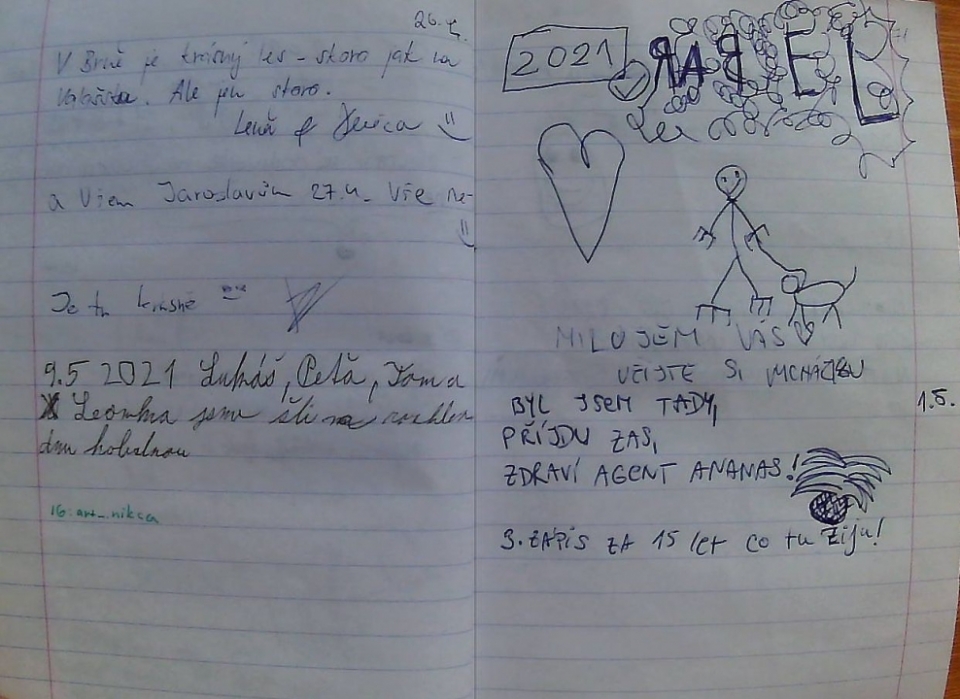 26.4.
V Brně je krásný les - skoro jak na
Valašsku. Ale jen skoro.
Leně &
a Všem Jaroslavům 27.4. Vše ne-
Je tu krásně
9.5 2021 Lukáš, Peťa, Tom a
Leonka jsme šli na rozhlednu
IG: art_nikca
2021
MILUJEM VÁS
BYL JSEM TADY,
1.5.
PŘÍJDU ZAS,
ZDRAVÍ AGENT ANANAS!
3. ZÁPIS ZA 15 let co tu žiju!